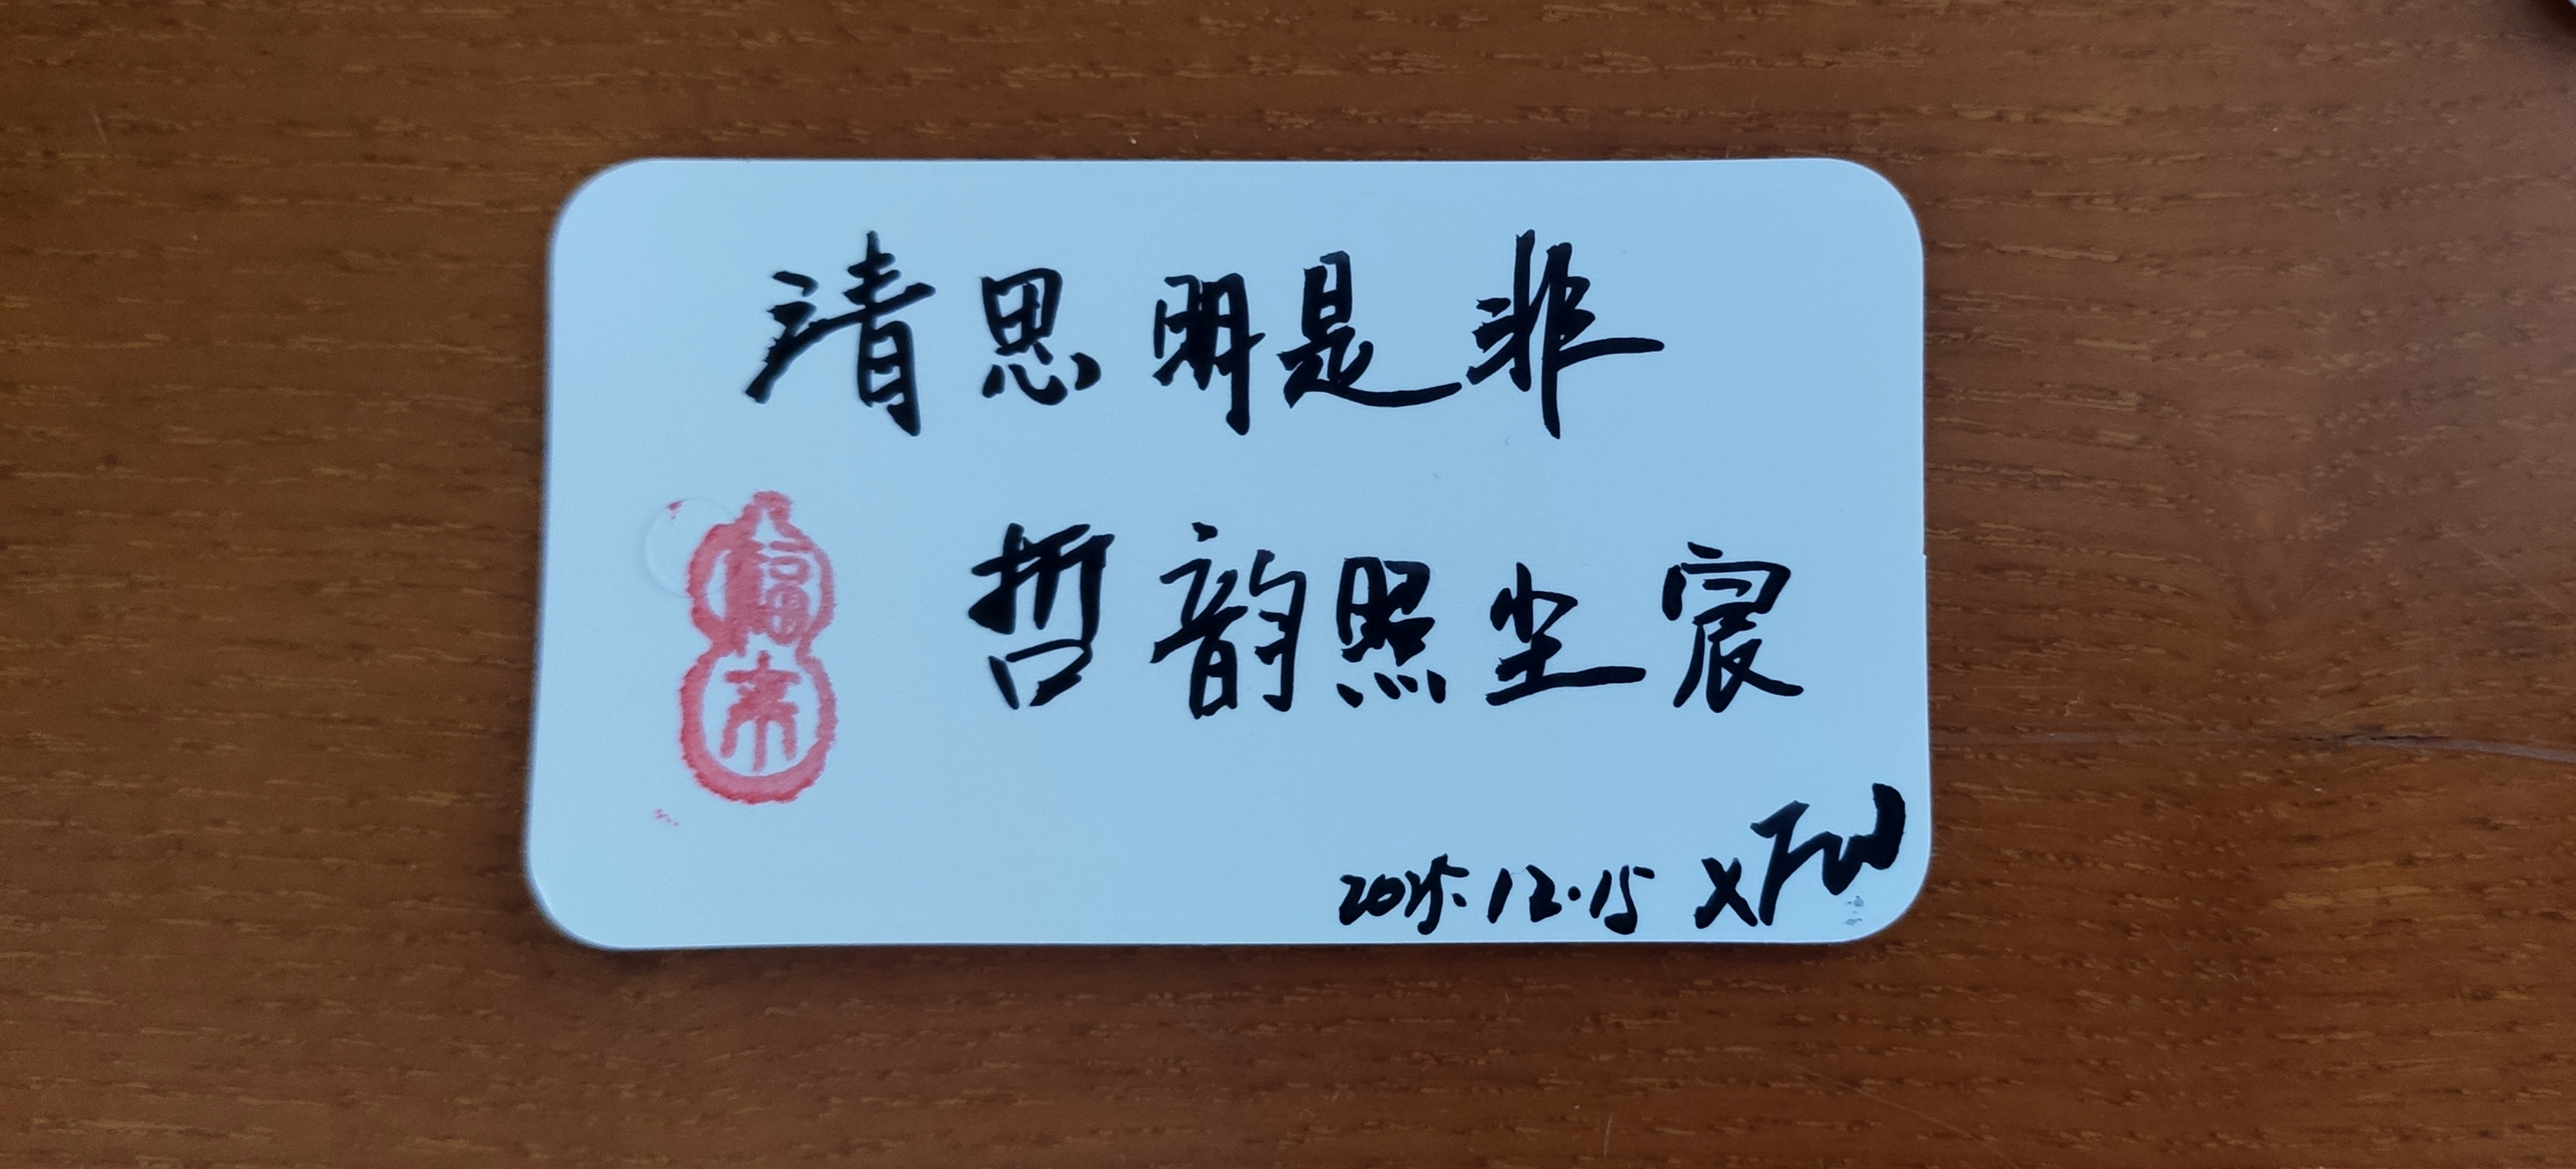 清思明是非
哲韵照尘宸
福
来
2025.12.15 XFW